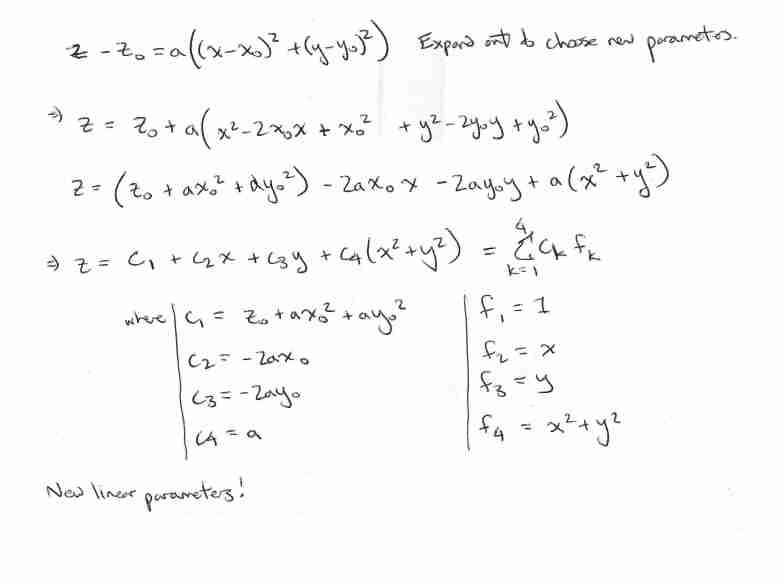 z - z₀ = a((x-x₀)² + (y-y₀)²) Expand out to choose new parameters.
⇒ z = z₀ + a(x² - 2x₀x + x₀² + y² - 2y₀y + y₀²)
z = (z₀ + ax₀² + ay₀²) - 2ax₀x - 2ay₀y + a(x² + y²)
⇒ z = c₁ + c₂x + c₃y + c₄(x² + y²) = ∑ₖ₌₁⁴ cₖ fₖ
where c₁ = z₀ + ax₀² + ay₀² f₁ = 1
c₂ = -2ax₀ f₂ = x
c₃ = -2ay₀ f₃ = y
c₄ = a f₄ = x² + y²
New linear parameters!